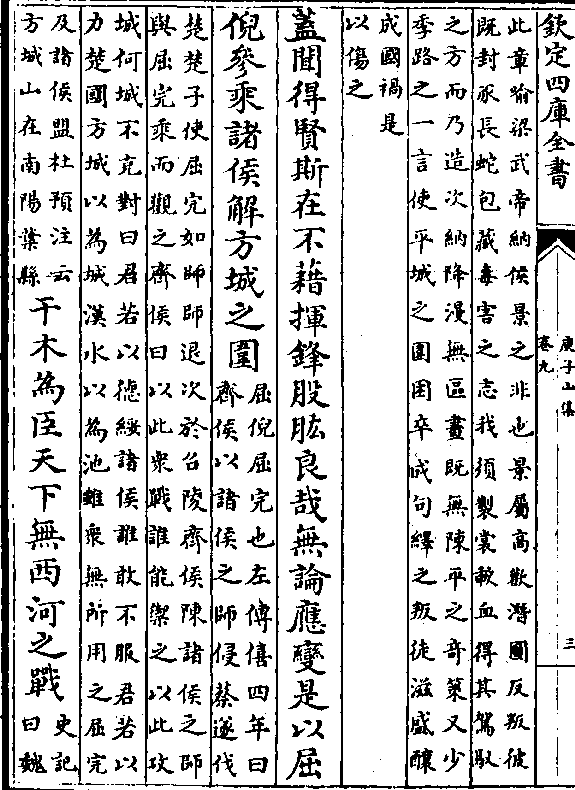 欽定四庫全書
庾子山集
卷九
三
此章喻梁武帝納侯景之非也景屬高歡潛圖反叛彼
既封豕長蛇包藏毒害之志我須製裳歃血得其駕馭
之方而乃造次納降漫無區畫既無陳平之奇策又少
季路之一言使平城之圍困卒成句繹之叛徒滋盛釀
成國禍是
以傷之
蓋聞得賢斯在不藉揮鋒股肱良哉無論應變是以屈
倪參乘諸侯解方城之圍
屈倪屈完也左傳僖四年曰
齊侯以諸侯之師侵蔡遂伐
楚楚子使屈完如師師退次於召陵齊侯陳諸侯之師
與屈完乘而觀之齊侯曰以此衆戰誰能禦之以此攻
城何城不克對曰君若以德綏諸侯誰敢不服君若以
力楚國方城以為城漢水以為池雖衆無所用之屈完
及諸侯盟杜預注云
方城山在南陽葉縣
干木為臣天下無西河之戰
史記
曰魏